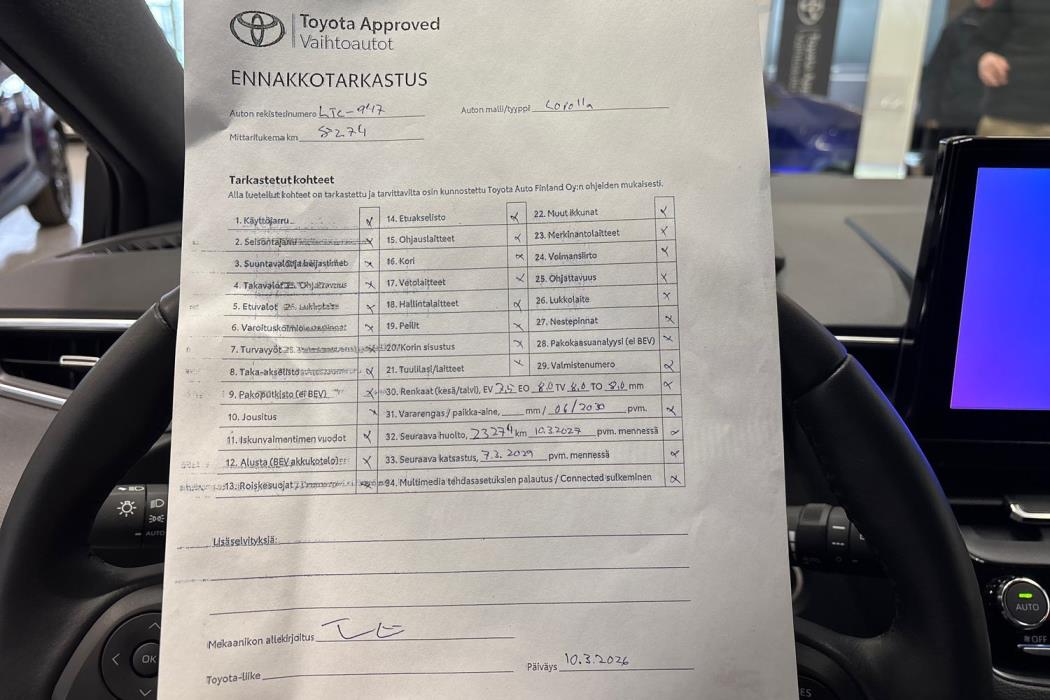 Toyota Approved
Vaihtoautot
ENNAKKOTARKASTUS
Auton rekisterinumero LTC-947
Auton malli/tyyppi Corolla
Mittarilukema km 8274
Tarkastetut kohteet
Alla luetellut kohteet on tarkastettu ja tarvittavilta osin kunnostettu Toyota Auto Finland Oy:n ohjeiden mukaisesti.
1. Käyttöjarru
2. Seisontajarru
3. Suuntavalot ja heijastimet
4. Takavalot
5. Etuvalot
6. Varoituskolmio
7. Turvavyöt
8. Taka-akselisto
9. Pakoputkisto (ei BEV)
10. Jousitus
11. Iskunvaimentimen vuodot
12. Alusta (BEV akkukotelo)
13. Roiskesuojat
14. Etuakselisto
15. Ohjauslaitteet
16. Kori
17. Vetolaitteet
18. Hallintalaitteet
19. Peilit
20. Korin sisustus
21. Tuulilasi/laitteet
22. Muut ikkunat
23. Merkinantolaitteet
24. Voimansiirto
25. Ohjattavuus
26. Lukkolaite
27. Nestepinnat
28. Pakokaasuanalyysi (ei BEV)
29. Valmistenumero
30. Renkaat (kesä/talvi), EV 7,5 EO 8,0 TV 8,0 TO 8,0 mm
31. Vararengas / paikka-aine, ____ mm / 06/2030 pvm.
32. Seuraava huolto, 23274 km 10.3.2027 pvm. mennessä
33. Seuraava katsastus, 7.3.2029 pvm. mennessä
34. Multimedia tehdasasetuksien palautus / Connected sulkeminen
Lisäselvityksiä:
Mekaanikon allekirjoitus
Toyota-liike
Päiväys 10.3.2026
OK
AUTO
AUTO
OFF